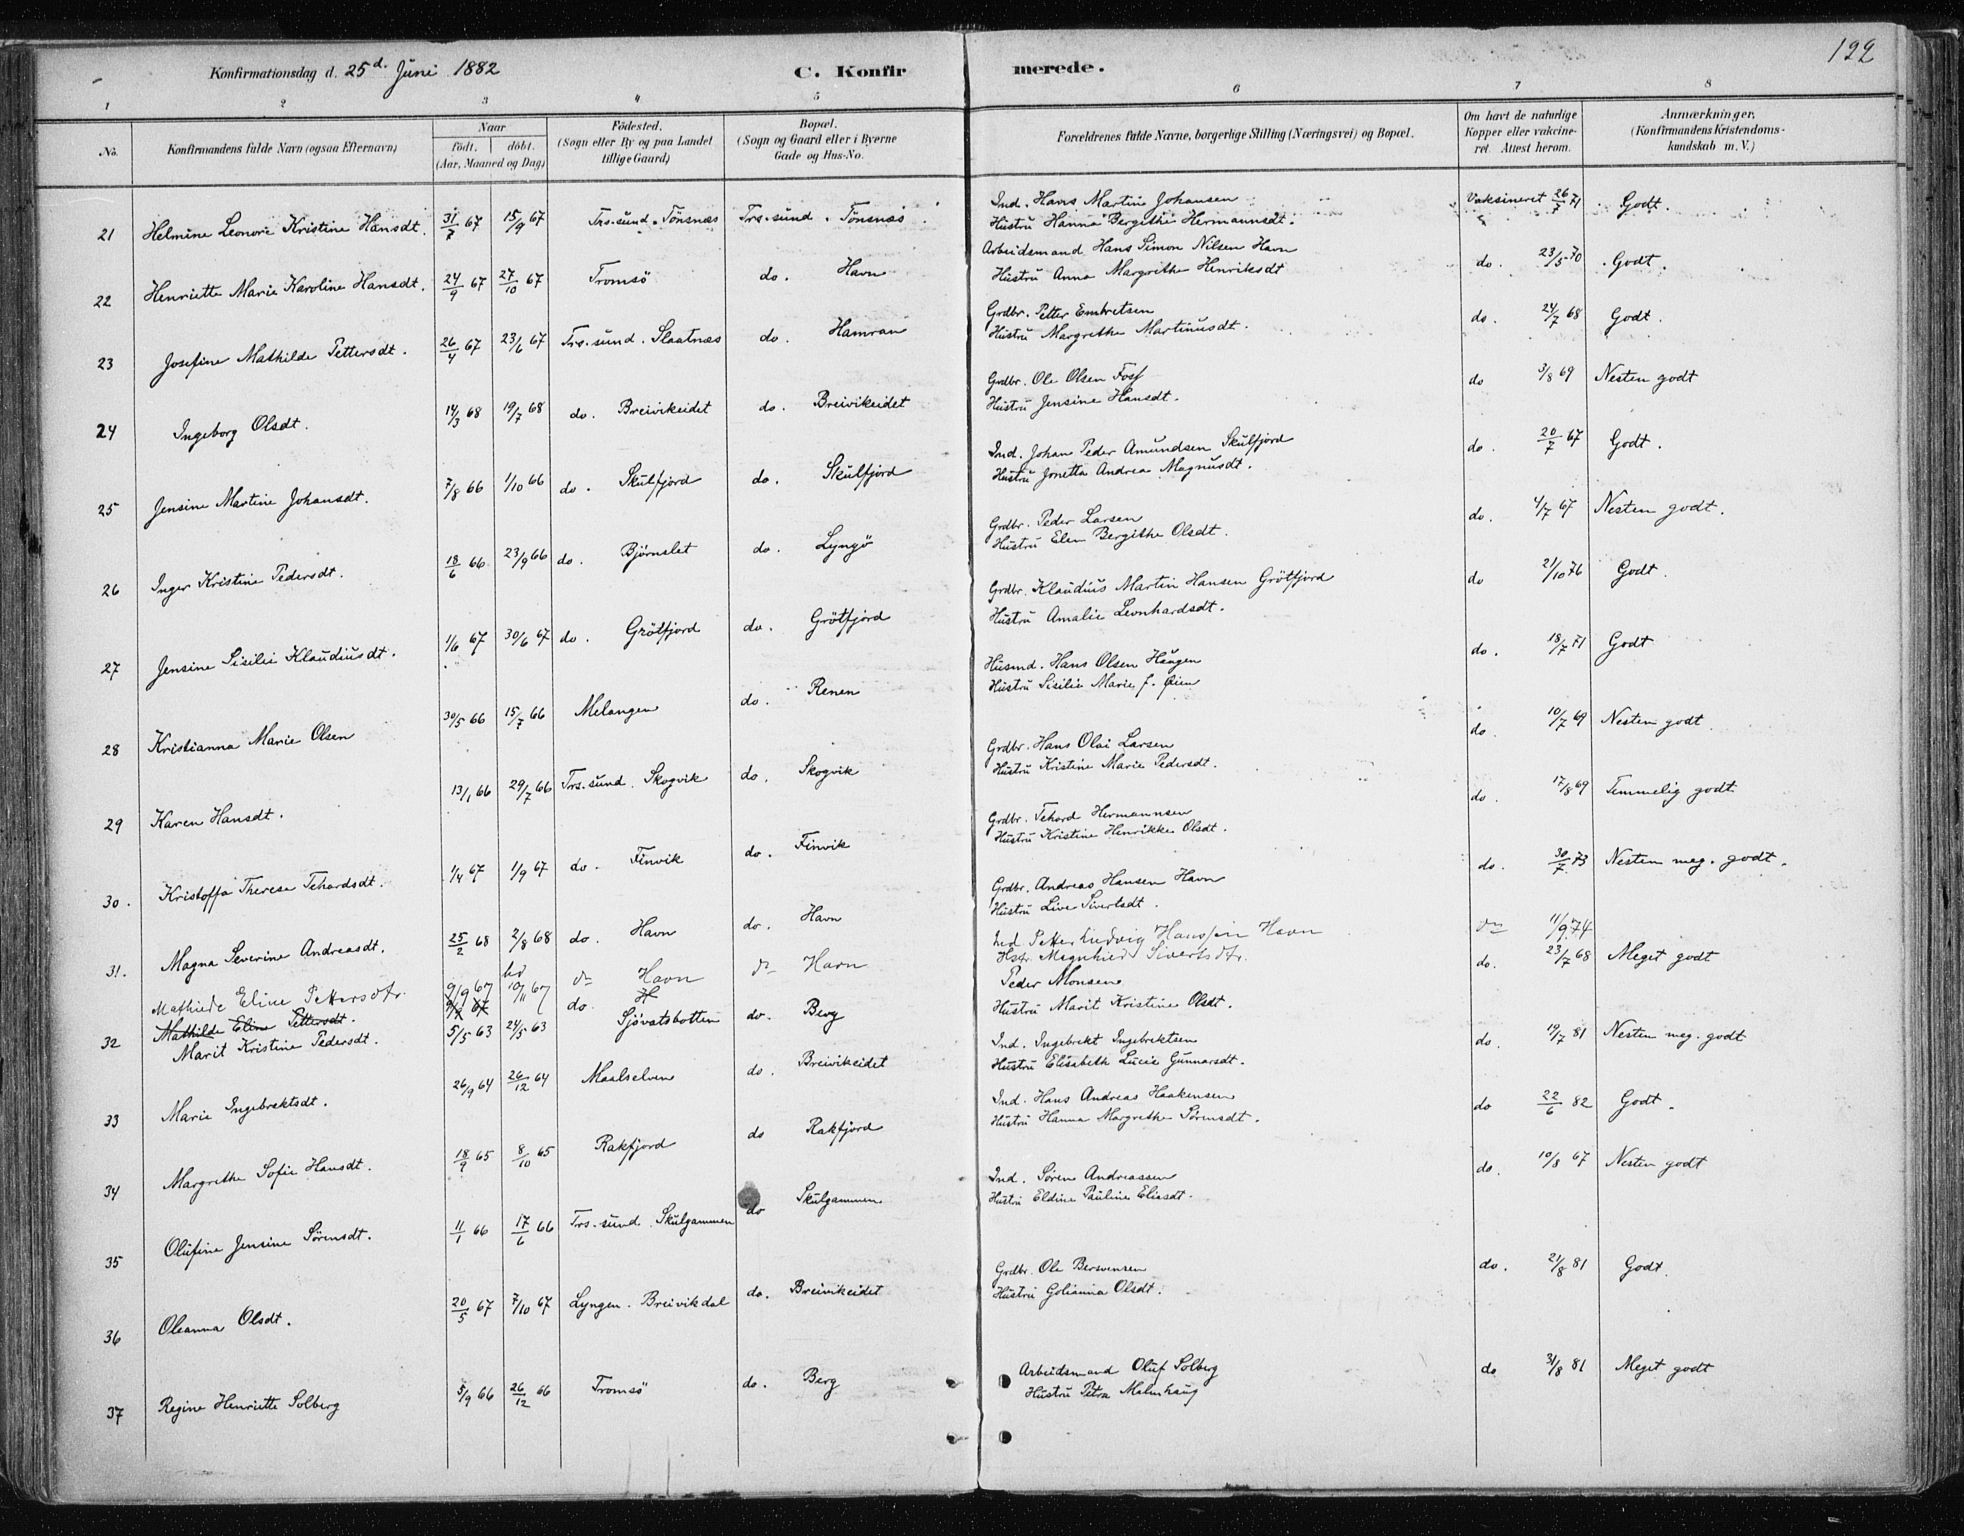 122
Konfirmationsdag d. 25d. Juni 1882 C. Konfirmerede.
1 2 3 4 5 6 7 8
No. Konfirmandens fulde Navn (ogsaa Efternavn) Naar Födt. döbt. (Aar, Maaned og Dag) Födested. (Sogn eller By og paa Landet tillige Gaard) Bopæl. (Sogn og Gaard eller i Byerne Gade og Hus-No. Forældrenes fulde Navne, borgerlige Stilling (Næringsvei) og Bopæl. Om havt de naturlige Kopper eller vakcineret. Attest herom. Anmærkninger. (Konfirmandens Kristendomskundskab m. V.)
21 Helmine Leonore Kristine Hansdt. 31/7 67 15/9 67 Trs.sund. Tönsnæs Trs.sund. Tönsnæs Ind. Hans Martin Johansen Vaksineret 26/7 71 Godt.
Hustru Hanna Bergithe Hermannsdt.
22 Henriette Marie Karoline Hansdt. 24/9 67 27/10 67 Tromsö do. Havn Arbeidsmand Hans Simon Nilsen Havn do. 23/5 70 Godt.
Hustru Anna Margrethe Henriksdt
23 Josefine Mathilde Pettersdt. 26/4 67 23/6 67 Trs.sund. Slaatnæs do. Hamran Grdbr. Petter Embretsen do. 24/7 68 Godt.
Hustru Margrethe Martinusdt.
24 Ingeborg Olsdt. 14/3 68 19/7 68 do. Breivikeidet do. Breivikeidet Grdbr. Ole Olsen Foss do 3/8 69 Nesten godt
Hustru Jensine Hansdt.
25 Jensine Martine Johansdt. 7/8 66 1/10 66 do. Skulfjord do. Skulfjord Ind. Johan Peder Amundsen Skulfjord do 20/7 67 Godt.
Hustru Jonetta Andrea Magnusdt.
26 Inger Kristine Pedersdt. 18/6 66 23/9 66 do. Björnslet do. Lyngö Grdbr. Peder Larsen do. 4/7 67 Nesten godt.
Hustru Elen Bergithe Olsdt.
27 Jensine Sisilie Klaudiusdt. 1/6 67 30/6 67 do. Grötfjord do. Grötfjord Grdbr. Klaudius Martin Hansen Grötfjord do 21/10 76 Godt.
Hustru Amalie Leonhardsdt.
28 Kristianna Marie Olsen 30/5 66 15/7 66 Melangen do. Renen Husmd. Hans Olsen Haugen do. 18/7 71 Godt
Hustru Sisilie Marie f. Øien
29 Karen Hansdt. 13/1 66 29/7 66 Trs.sund. Skogvik do. Skogvik Grdbr. Hans Olai Larsen do. 10/7 69 Nesten godt
Hustru Kristine Marie Pedersdt.
30. Kristoffa Therese Tehardsdt. 1/4 67 1/9 67 do. Finvik do. Finvik Grdbr. Tehard Hermannsen do. 17/8 69 Temmelig godt
Hustru Kristine Henrikke Olsdt.
31. Magna Severine Andreasdt. 25/2 68 2/8 68 do. Havn do. Havn Grdbr. Andreas Hansen Havn do. 30/7 73 Nesten meg. godt.
Hustru Live Sivertsdt.
Mathilde Eline Pettersdtr. 9/9 67 hd 10/11 67 do Havn do Havn Ind Petter Ludvig Hanssen Havn do 11/9 74
Hstr. Magnhild Sivertsdtr.
Mathilde Eline Pettersdt. 9/9 67 do. H
32 Marit Kristine Pedersdt. 5/5 63 24/5 63 Sjövatsbotten do. Berg Peder Monsen do. 23/7 68 Meget godt
Hustru Marit Kristine Olsdt.
33 Marie Ingebrektsdt. 26/9 64 26/12 64 Maalselven do. Breivikeidet Ind. Ingebrekt Ingebrektsen do. 19/7 81 Nesten meg. godt
Hustru Elisabeth Lucie Gunnarsdt.
34 Margrethe Sofie Hansdt. 18/9 65 8/10 65 Rakfjord do Rakfjord Ind. Hans Andreas Haakensen do 22/6 82 Godt.
Hustru Hanna Margrethe Sörensdt.
35 Olufine Jensine Sörensdt. 11/1 66 17/6 66 Trs.sund. Skulgammen do Skulgammen Ind. Sören Andreassen do. 10/8 67 Nesten godt
Hustru Eldine Pauline Eliasdt.
36 Oleanna Olsdt. 20/5 67 7/10 67 Lyngen. Breivikdal do. Breivikeidet Grdbr. Ole Berwensen do. 21/8 81 Godt.
Hustru Golianna Olsdt.
37 Regine Henriette Solberg 5/9 66 26/12 66 Tromsö do. Berg Arbeidsmand Oluf Solberg do 31/8 81 Meget godt
Hustru Petra Malmhaug